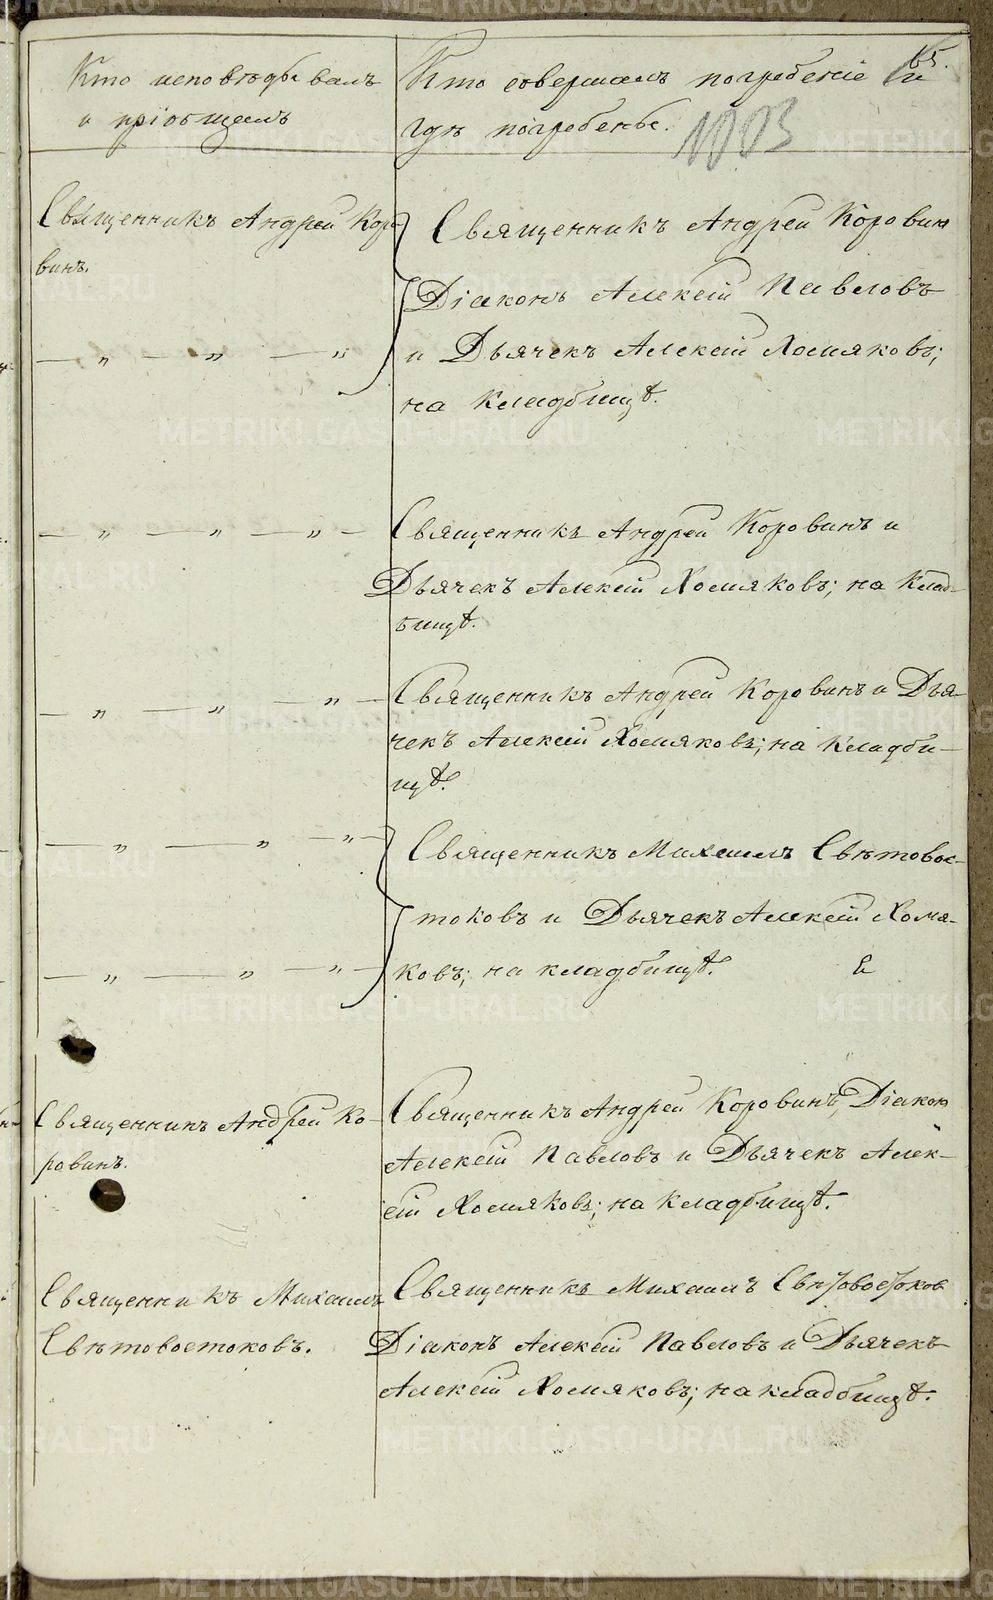 65.
Кто исповѣдывалъ
и пріобщалъ
Кто совершалъ погребеніе и
гдѣ погребены.
1003
Священникъ Андрей Коро
винъ.
— „ — „ — „
Священникъ Андрей Коровин
Діаконъ Алексій Павловъ
и Дьячекъ Алексій Хомяковъ;
на кладбищѣ.
— „ — „ — „ —
Священникъ Андрей Коровинъ и
Дьячекъ Алексій Хомяковъ; на клад-
бищѣ.
— „ — „ — „ —
Священникъ Андрей Коровинъ и Дья-
чекъ Алексій Хомяковъ; на кладби-
щѣ.
— „ — „ — „ —
Священникъ Михаилъ Свѣтовос-
токовъ и Дьячекъ Алексій Хомя-
— „ — „ — „ —
ковъ; на кладбищѣ.
Священникъ Андрей Ко-
ровинъ.
Священникъ Андрей Коровинъ, Діакон
Алексій Павловъ и Дьячекъ Алек-
сій Хомяковъ; на кладбищѣ.
Священникъ Михаилъ
Свѣтовостоковъ.
Священникъ Михаилъ Свѣтовостоков
Діаконъ Алексій Павловъ и Дьячекъ
Алексій Хомяковъ; на кладбищѣ.
METRIKI.GASO-URAL.RU